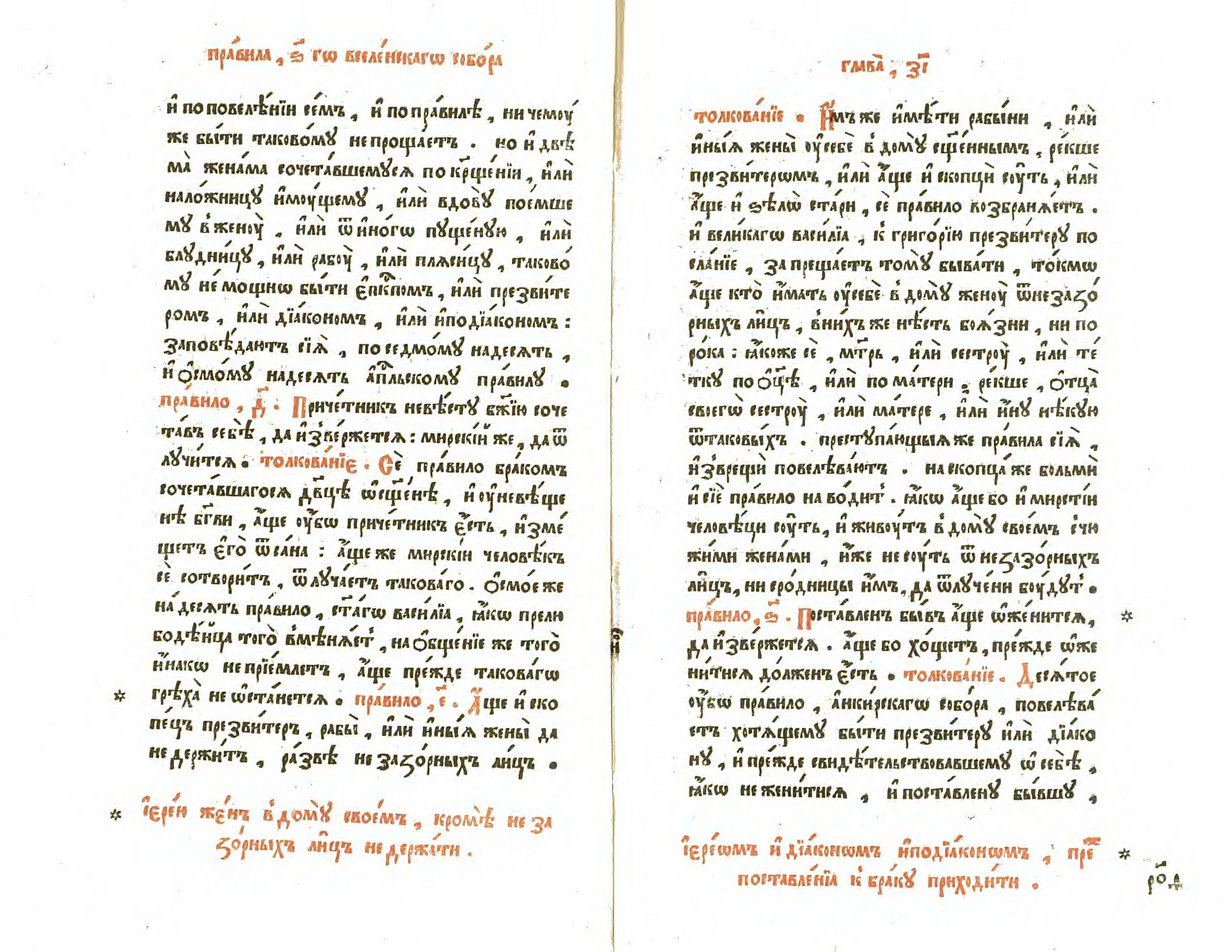 пра́вила , ѕ҃ гѡ вселе́нскагѡ собо́ра
и҆ по повелѣ́нїи се́мъ , и҆ по пра́вилѣ , ни чемоу̀
же бы́ти таково́мꙋ не проща́етъ . но и҆ двѣ
ма̀ жена́ма сочета́вшемꙋсѧ по кр҃ще́нїи , и҆лѝ
нало́жницꙋ и҆мꙋ́щемꙋ , и҆лѝ вдовꙋ̀ пое́мше
мꙋ в женоу̀ , и҆лѝ ѿ и҆но́гѡ пꙋще́нꙋю , и҆лѝ
блꙋдни́цꙋ , и҆лѝ рабоу̀ , и҆лѝ плѧса́вицꙋ , таково́
мꙋ не мо́щнѡ бы́ти є҆пⷭ҇кпомъ , и҆лѝ презви́те
ромъ , и҆лѝ дїа́кономъ , и҆лѝ и҆подїа́кономъ :
заповѣ́даютъ сїѧ̀ , по седмо́мꙋ на́десѧть ,
и҆ ѻ҆смо́мꙋ на́десѧть а҆пⷭ҇льскомꙋ пра́вилꙋ .
пра́вило , д҃ . Приче́тникъ невѣ́стꙋ бж҃їю соче
та́въ себѣ̀ , да и҆зве́ржетсѧ : мирскі́й же , да ѿ
лꙋчи́тсѧ . толкова́нїе . Сѐ пра́вило бра́комъ
сочета́вшагосѧ дв҃цѣ ѡ҆сщ҃е́нѣ , и҆ оу҆невѣ́ще
нѣ бг҃ви , а҆́ще оу҆́бѡ приче́тникъ є҆́сть , и҆зме́
щетъ є҆го̀ ѿ са́на : а҆́ще же мирскі́й человѣ́къ
сѐ сотвори́тъ , ѿлꙋча́етъ такова́го . ѻ҆смо́е же
на́десѧть пра́вило , ст҃а́гѡ васи́лїа , ꙗ҆́кѡ прелю
бодѣ́йца того̀ вмѣнѧ́етъ , на ѻ҆бще́нїе же того̀
и҆на́кѡ не прїе́млетъ , а҆́ще пре́жде такова́гѡ
грѣха̀ не ѡ҆ста́нетсѧ . пра́вило , є҃ . А҆́ще и҆ ско
пе́цъ презви́теръ , рабы̀ , и҆лѝ и҆ны́ѧ жены̀ да
не держи́тъ , ра́звѣ не зазо́рныхъ ли́цъ .
і҆ере́ю же́нъ в домꙋ̀ свое́мъ , кромѣ̀ не за
зо́рныхъ ли́цъ не держа́ти .
глава̀ , з҃і
толкова́нїе . И҆́мъ же и҆мѣ́ти рабы́ни , и҆лѝ
и҆ны́ѧ жены̀ оу҆ себѐ в домꙋ̀ сщ҃е́ннымъ , ре́кше
презви́терѡмъ , и҆лѝ а҆́ще и҆ скопцы̀ сꙋ́ть , и҆лѝ
а҆́ще и҆ ѕѣлѡ̀ ста́ри , сѐ пра́вило возбранѧ́етъ .
и҆ вели́кагѡ васи́лїа , к григо́рїю презви́терꙋ по
сла́нїе , запреща́етъ томꙋ̀ быва́ти , то́кмѡ
а҆́ще кто̀ и҆́мать оу҆ себѐ в домꙋ̀ женоу̀ ѿ незазо́
рныхъ ли́цъ , в ни́хъ же нѣ́сть боѧ́зни , ни по
ро́ка : ꙗ҆́коже сѐ , мт҃рь , и҆лѝ сестроу̀ , и҆лѝ те́
ткꙋ по ѻ҆ц҃ѣ̀ , и҆лѝ по ма́тери , ре́кше , ѻ҆тца̀
своегѡ̀ сестроу̀ , и҆лѝ ма́тере , и҆лѝ и҆́нꙋ нѣ́кꙋю
ѿ таковы́хъ . престꙋпа́ющыѧ же пра́вила сїѧ̀ ,
и҆зврещѝ повелѣва́ютъ . на скопца́ же бо́льми
и҆ сїѐ пра́вило наво́дитъ . ꙗ҆́кѡ а҆́ще бо и҆ мирсті́и
человѣ́цы сꙋ́ть , и҆ живꙋ́тъ в домꙋ̀ свое́мъ с чю
жи́ми жена́ми , и҆̀же не сꙋ́ть ѿ незазо́рныхъ
ли́цъ , ни сро́дницы и҆̀мъ , да ѿлꙋче́ни бꙋ́дꙋтъ .
пра́вило , ѕ҃ . Поста́вленъ бы́въ а҆́ще ѡ҆же́нитсѧ ,
да и҆зве́ржетсѧ . а҆́ще бо хо́щетъ , пре́жде ѡ҆же
ни́тисѧ до́лженъ є҆́сть . толкова́нїе . Десѧ́тое
оу҆́бѡ пра́вило , а҆нки́рскагѡ собо́ра , повелѣва́
етъ хотѧ́щемꙋ бы́ти презви́терꙋ и҆лѝ дїа́ко
нꙋ , и҆ пре́жде свидѣ́тельствовавшемꙋ ѡ҆ себѣ̀ ,
ꙗ҆́кѡ не жени́тисѧ , и҆ поста́вленꙋ бы́вшꙋ ,
і҆ере́ѡмъ и҆ дїа́конѡмъ и҆подїа́конѡмъ , пре́ⷤ
поставле́нїѧ к бра́кꙋ приходи́ти .
ро҃д